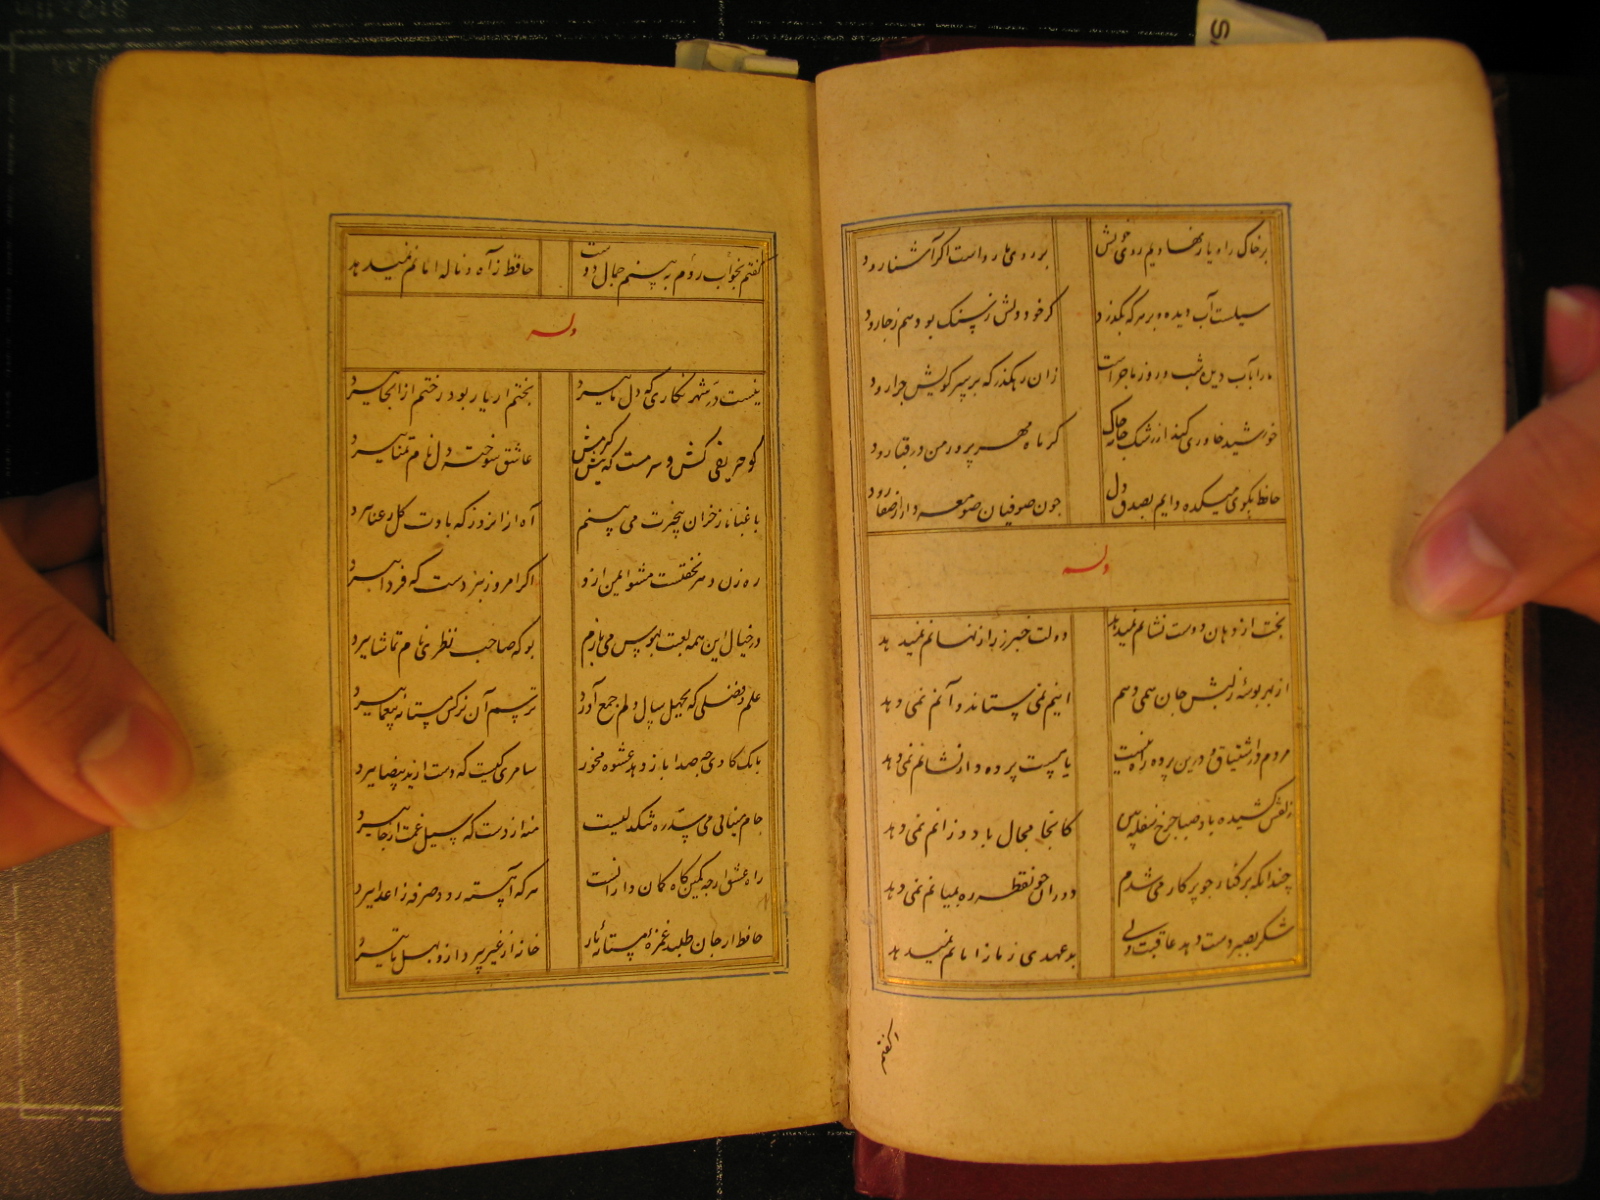 بر خاک راه یار نهادیم روی خویش بر روی ما رواست اگر آشنا رود
سیلست آب دیده و بر هر که بگذرد گر خود دلش ز سنگ بود هم ز جا رود
ما را بآب دیده شب و روز ماجراست زان رهگذر که بر سر کویش چرا رود
خورشید خاوری کند از رشک جامه چاک گر ماه مهرپرور من در قبا رود
حافظ بکوی میکده دایم بصدق دل چون صوفیان صومعه دار از صفا رود
وله
بخت از دهان دوست نشانم نمیدهد دولت خبر ز راز نهانم نمیدهد
از بهر بوسهٔ ز لبش جان همی دهم اینم نمی ستاند و آنم نمی دهد
مردم در اشتیاق و درین پرده راه نیست یا هست پرده دار نشانم نمی دهد
زلفش کشیده باد صبا چرخ سفله بین کانجا مجال باد وزانم نمی دهد
چندانکه بر کنار چو پرکار می شدم دوران چو نقطه ره بمیانم نمی دهد
شکر بصبر دست دهد عاقبت ولی بدعهدی زمانه امانم نمیدهد
گفتم
گفتم بخواب روم به بینم جمال دوست حافظ ز آه و ناله امانم نمیدهد
وله
نیست در شهر نگاری که دل ما ببرد بختم ار یار بود رختم از اینجا ببرد
کو حریفی کش و سرمست که پیش کرمش عاشق سوخته دل نام تمنا ببرد
باغبانا ز خزان بیخبرت می بینم آه از آن روز که بادت گل رعنا ببرد
ره زن دهر نخفتست مشو ایمن ازو اگر امروز نبردست که فردا ببرد
در خیال این همه لعبت بهوس می بازم بو که صاحب نظری نام تماشا ببرد
علم و فضلی که بچهل سال دلم جمع آورد ترسم آن نرگس مستانه بیغما ببرد
بانک گاوی چه صدا باز دهد عشوه مخر سامری کیست که دست از ید بیضا ببرد
جام مینایی می سد ره تنگ دلیست منه از دست که سیل غمت از جا ببرد
راه عشق ار چه کمین گاه کمان دارانست هر که آهسته رود صرفه ز اعدا ببرد
حافظ ار جان طلبد غمزهٔ مستانهٔ یار خانه از غیر بپرداز و بهل تا ببرد